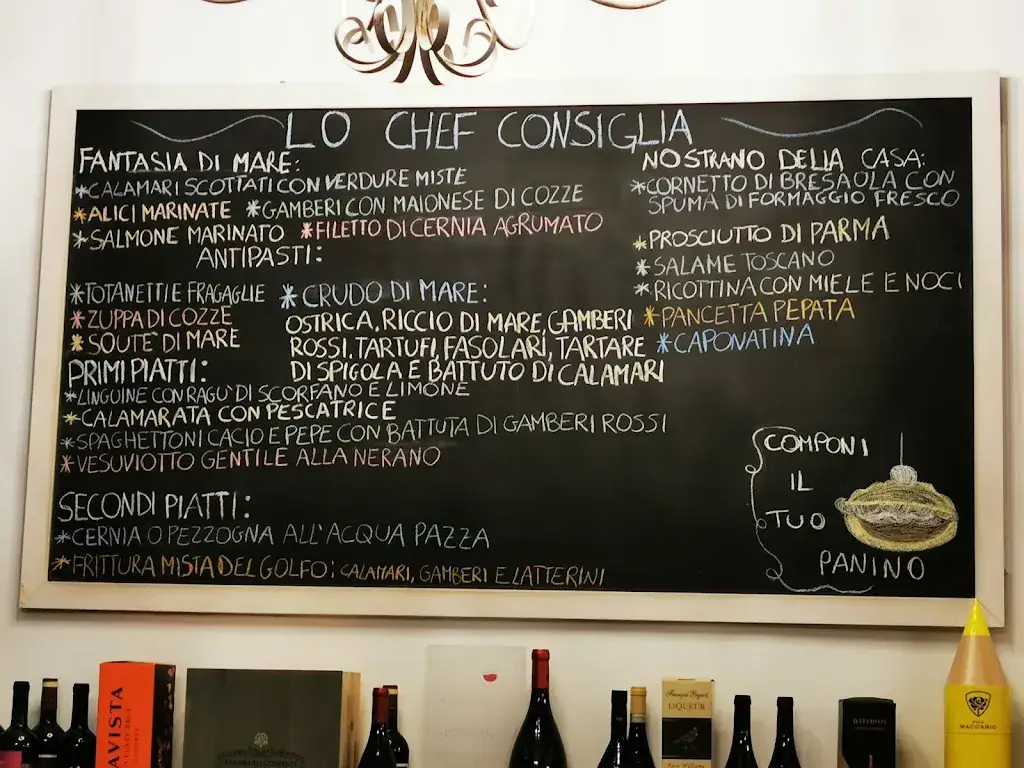 LO CHEF CONSIGLIA
FANTASIA DI MARE:
*CALAMARI SCOTTATI CON VERDURE MISTE
*ALICI MARINATE *GAMBERI CON MAIONESE DI COZZE
*SALMONE MARINATO *FILETTO DI CERNIA AGRUMATO
ANTIPASTI:
*TOTANETTI E FRAGAGLIE
*ZUPPA DI COZZE
*SOUTE` DI MARE
*CRUDO DI MARE:
OSTRICA, RICCIO DI MARE, GAMBERI
ROSSI, TARTUFI, FASOLARI, TARTARE
DI SPIGOLA E BATTUTO DI CALAMARI
PRIMI PIATTI:
*LINGUINE CON RAGU` DI SCORFANO E LIMONE
*CALAMARATA CON PESCATRICE
*SPAGHETTONI CACIO E PEPE CON BATTUTA DI GAMBERI ROSSI
*VESUVIOTTO GENTILE ALLA NERANO
SECONDI PIATTI:
*CERNIA O PEZZOGNA ALL'ACQUA PAZZA
*FRITTURA MISTA DEL GOLFO: CALAMARI, GAMBERI E LATTERINI
NOSTRANO DELLA CASA:
*CORNETTO DI BRESAOLA CON
SPUMA DI FORMAGGIO FRESCO
*PROSCIUTTO DI PARMA
*SALAME TOSCANO
*RICOTTINA CON MIELE E NOCI
*PANCETTA PEPATA
*CAPONATINA
COMPONI
IL
TUO
PANINO
AVISTA
LIQUEUR
MACCARIO